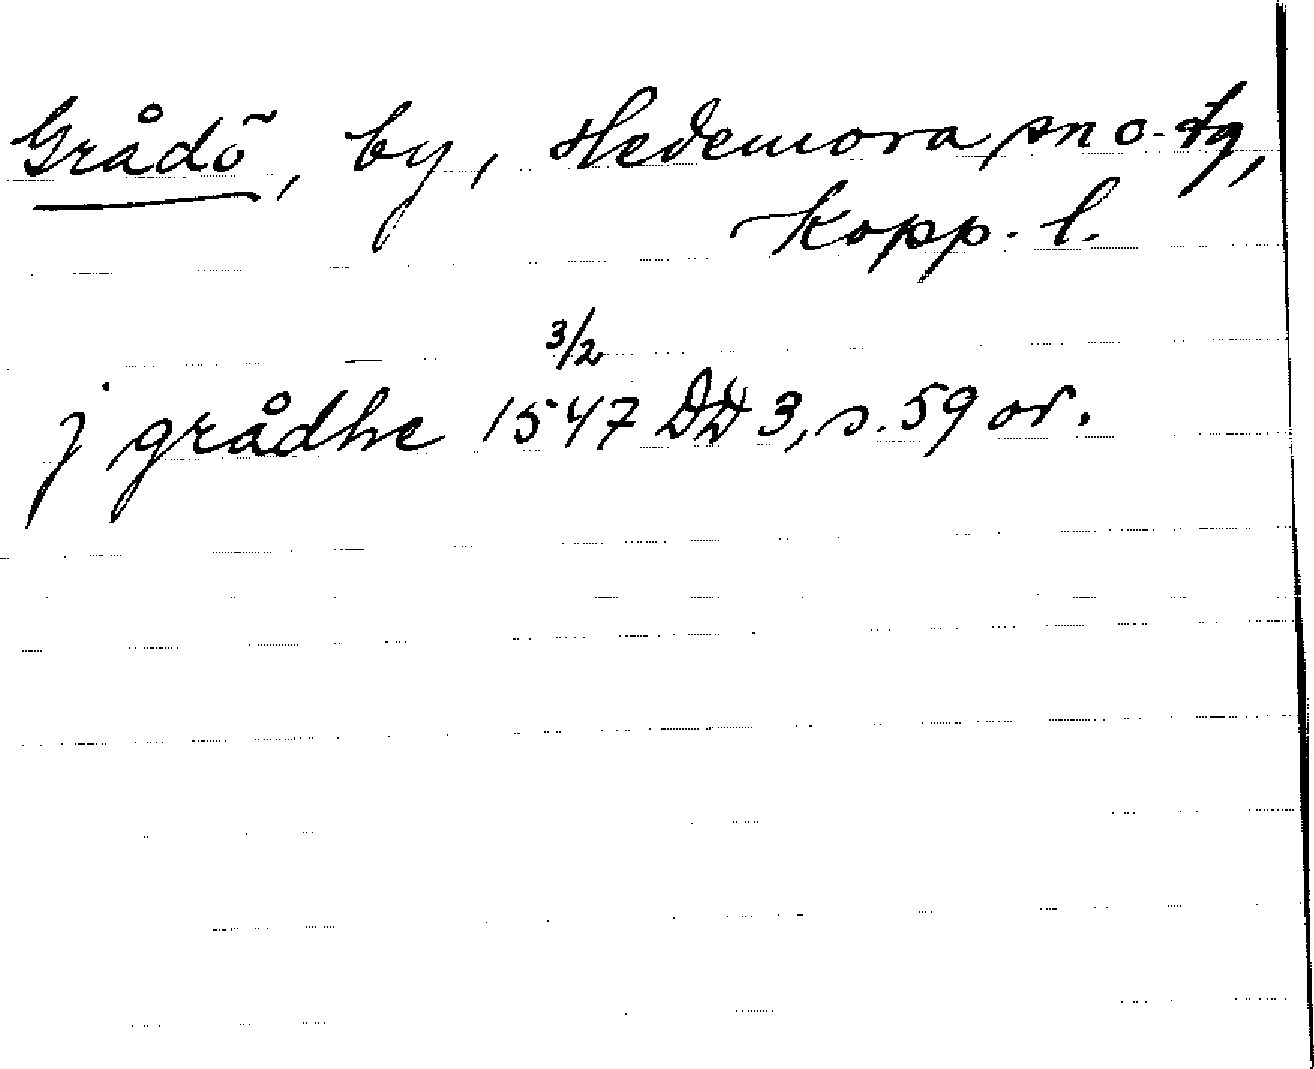 Grådö, by, Hedemora sn o. tg,
Kopp. l.
3/2
j grådhe 1547 DD 3, s. 59 or.